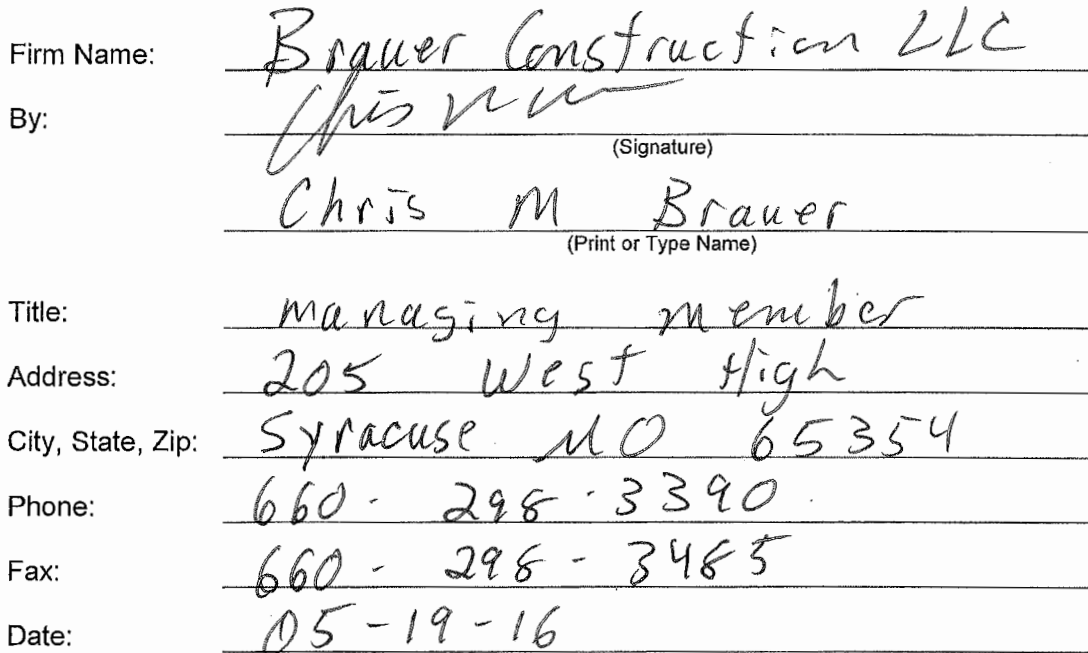 Firm Name: Brauer Construction LLC
By: Chris
(Signature)
Chris M Brauer
(Print or Type Name)
Title: Managing Member
Address: 205 West High
City, State, Zip: Syracuse MO 65354
Phone: 660 - 298 - 3390
Fax: 660 - 298 - 3485
Date: 05-19-16